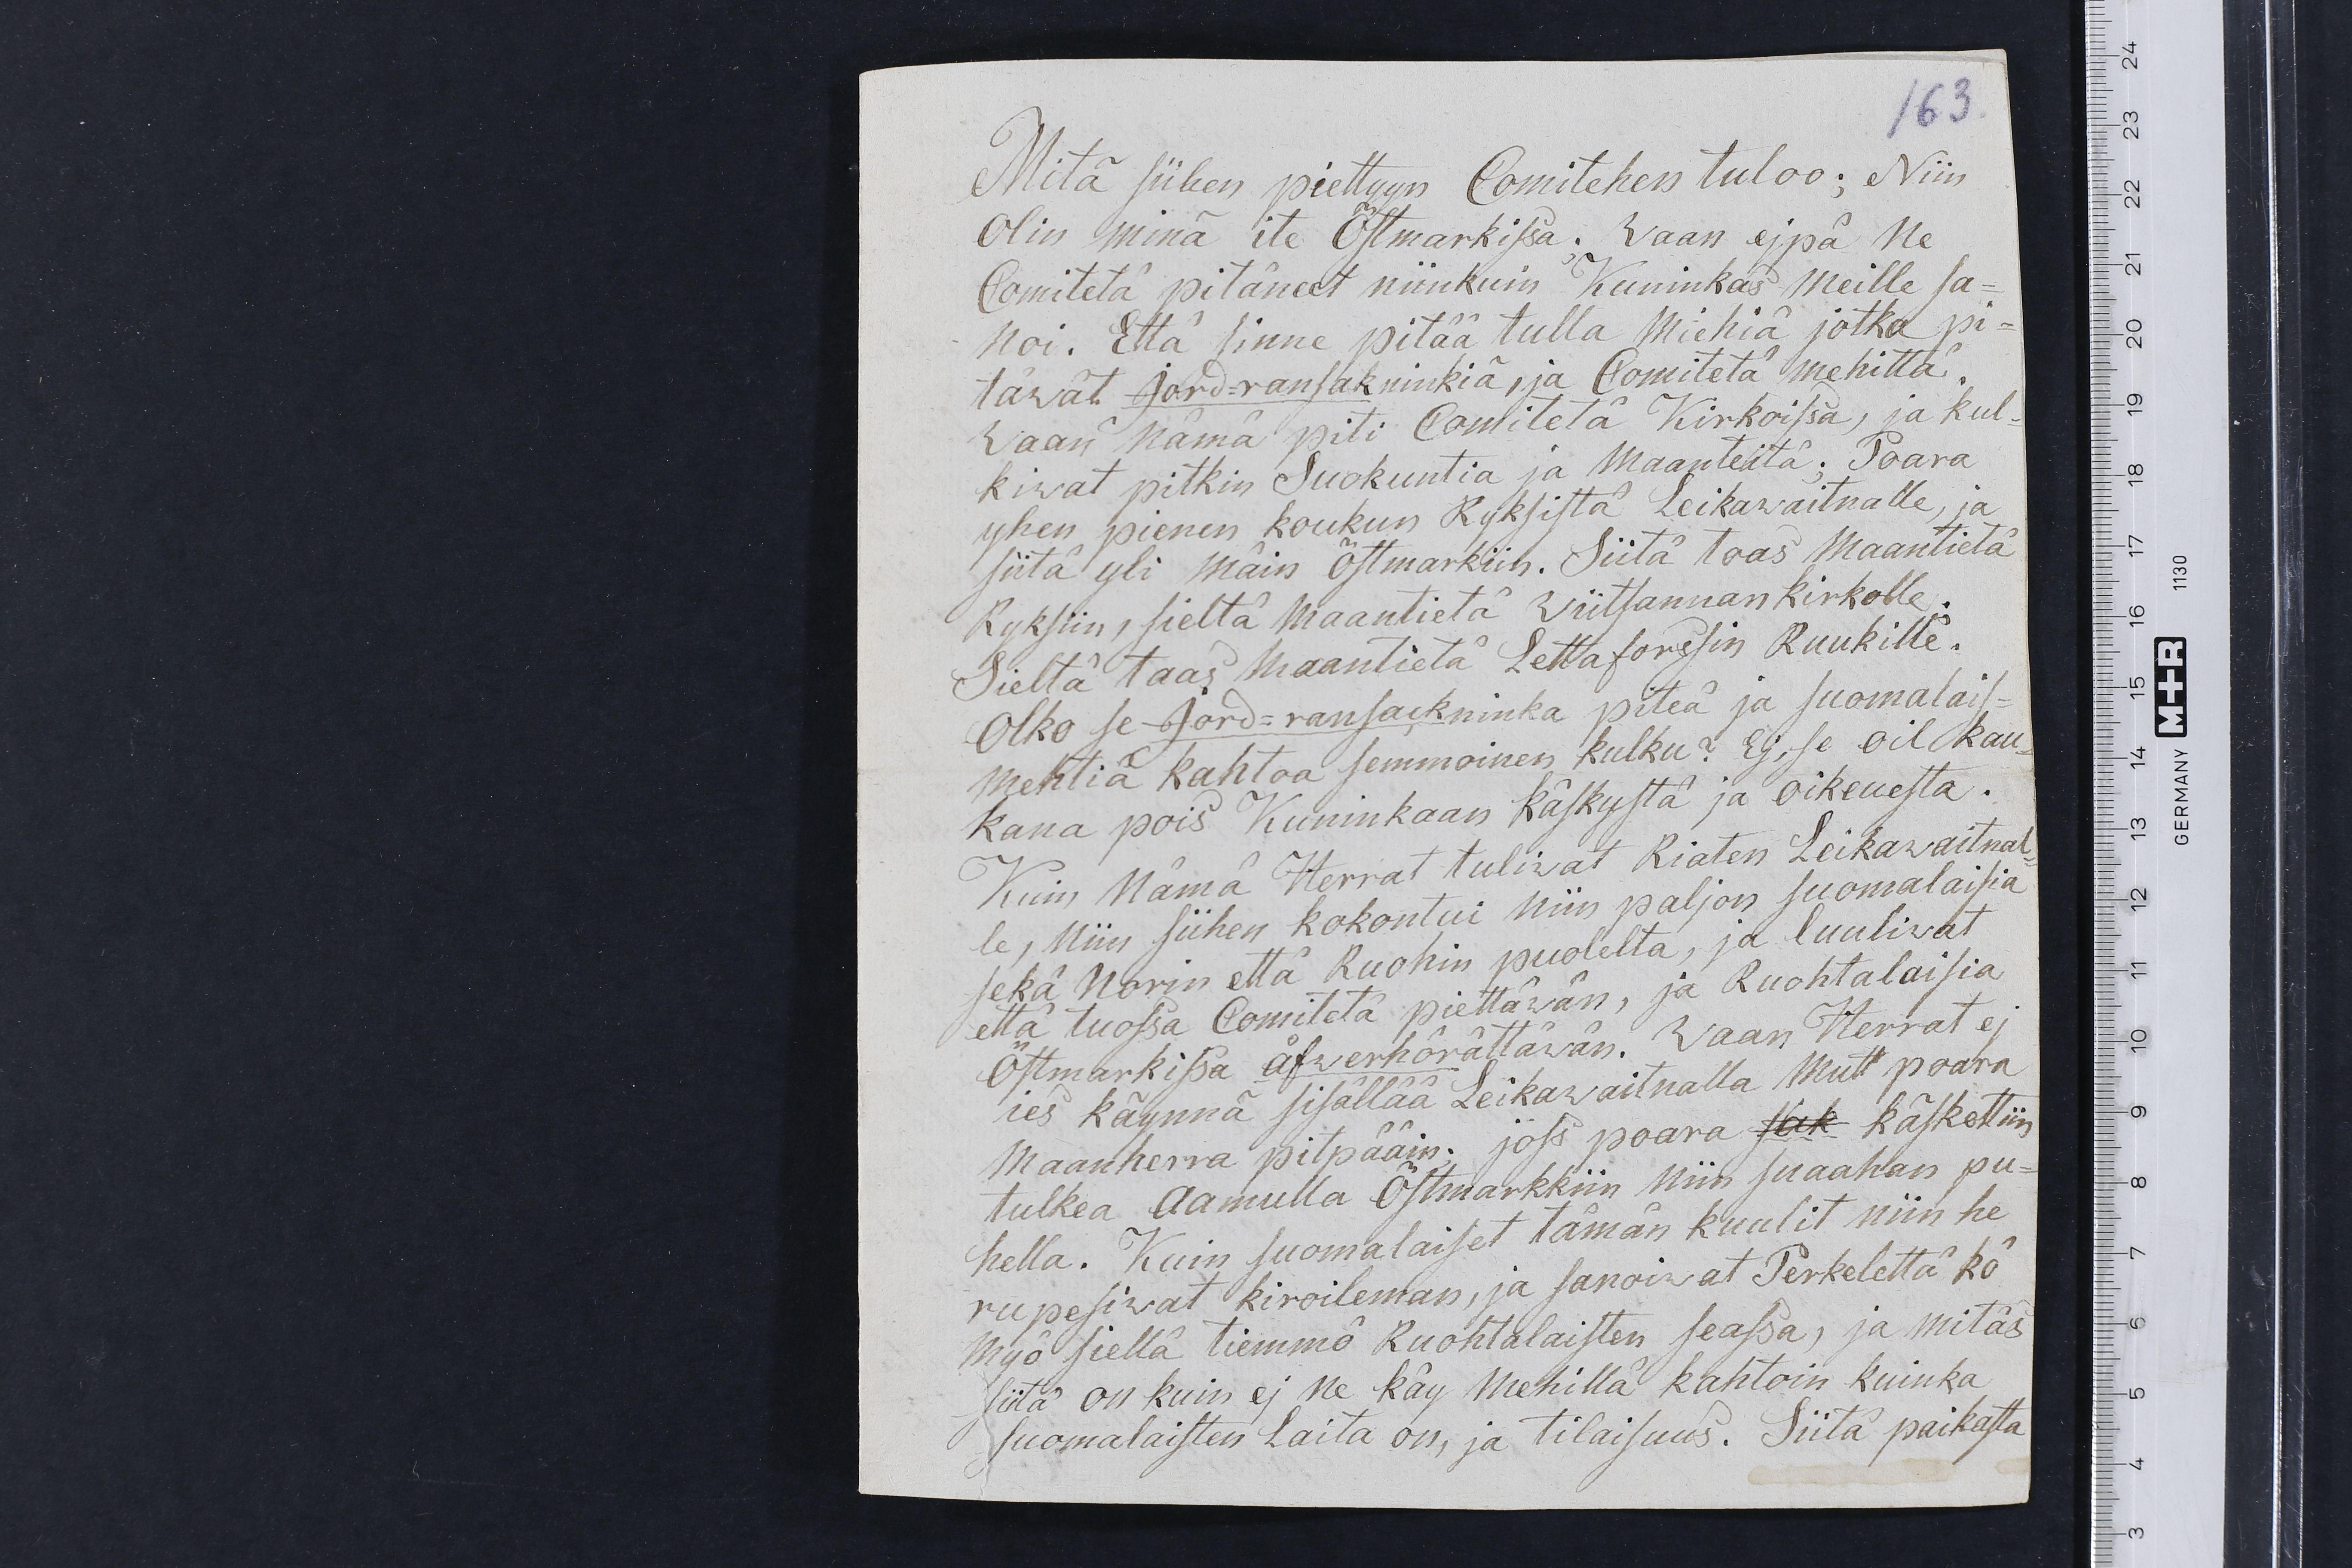 163.
Mitä siihen piettyyn Comitehen tuloo; Niin
olin minä ite Östmarkissa; Waan ejpä Ne
Comitetä pitäneet niinkuin Kuninkas meille sa=
noi. Että sinne pitää tulla Miehiä jotka pi=
täwät jord=ransakninkiä, ja Comitetä mehittä.
Waan Nämä piti Comitetä Kirkoissa, ja kul=
kiwat pitkin Suokuntia ja Maanteitä; Poara
yhen pienen koukun Ryksistä Leikawaitnalle, ja
siitä yli Mäin Östmarkiin. Siitä toas Maantietä
Ryksiin, sieltä Maantietä Wiitsannan kirkolle;
Sieltä taas Maantietä Lettaforssin Ruukille.
Olko se jord=ransackninka piteä ja suomalais=
Mehtiä kahtoa semmoinen kulku? Ej, se oil kau=
kana pois Kuninkaan käskystä ja oikeuesta.
Kuin Nämä Herrat tuliwat Riaten Leikawaitnal=
le, Niin siihen kokontui Niin paljon suomalaisia
sekä Norin että Ruohin puolelta, ja luuliwat
että tuossa Comitetä piettäwän, ja Ruohtalaisia
Östmarkissa åfwerhörättäwän. Waan Herrat ej
ies käynnä sisällää Leikawaitnalla Mutt poara
Maanherra pitpääin; joss poara sak käskettiin
tulkea Aamulla Östmarkkiin Niin suaahan pu=
hella. Kuin suomalaiset tämän kuulit niin he
rupesiwat kiroileman, ja sanoiwat Perkelettä kö
Myö siellä tiemmö Ruohtalaisten seassa, ja mitäs
siitä on kuin ej Ne käy Mehillä kahtoin kuinka
suomalaisten Laita on, ja tilaisuus. Siitä paikasta
24
23
22
21
20
19
18
17
16
15
14
13
12
11
10
9
8
7
6
5
4
3
GERMANY M+R 1130